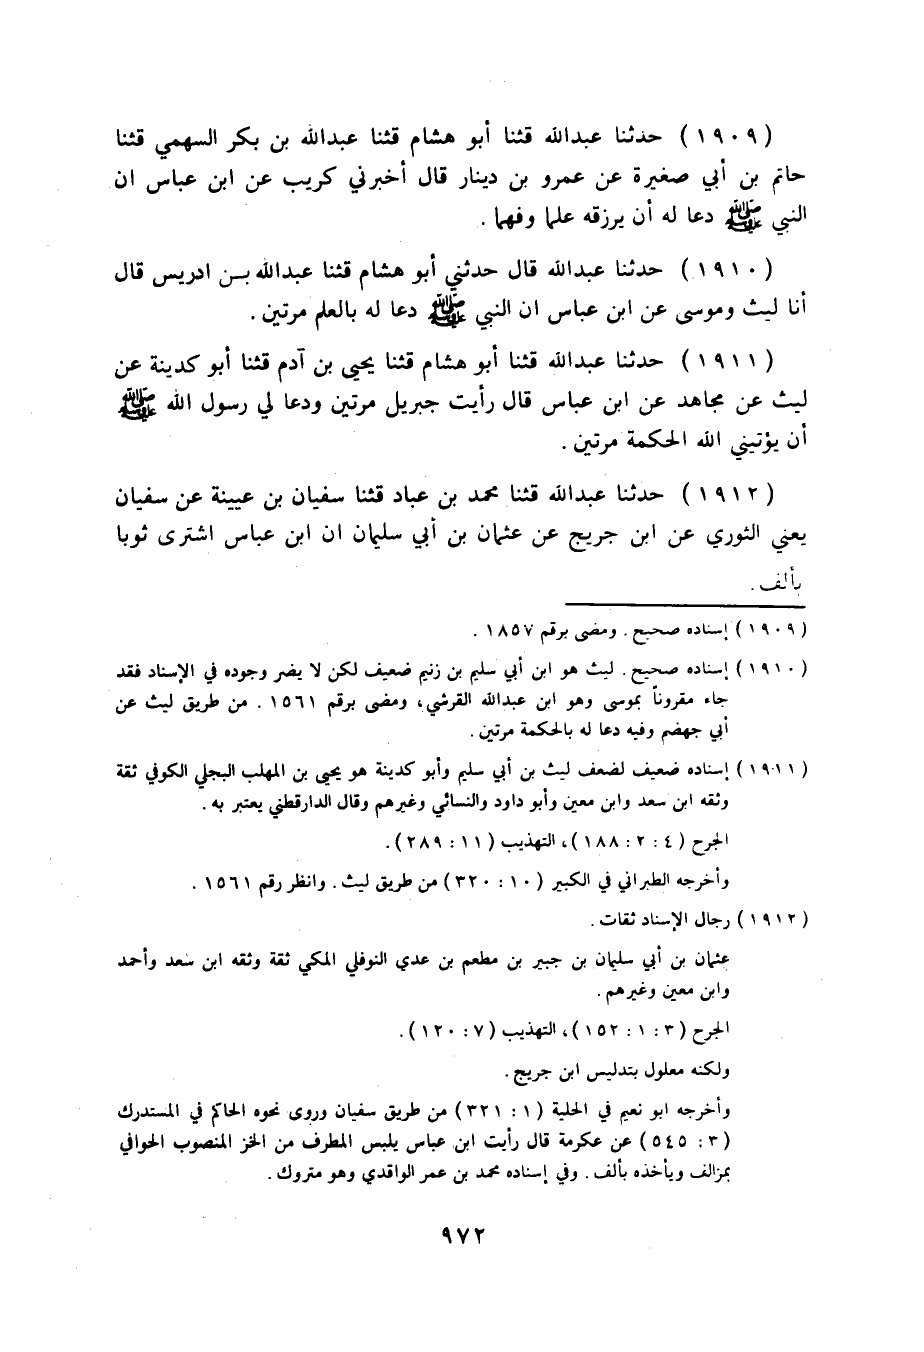 (١٩٠٩) حدثنا عبدالله قثنا أبو هشام قثنا عبدالله بن بكر السهمي قثنا
حاتم بن أبي صغيرة عن عمرو بن دينار قال أخبرني كريب عن ابن عباس ان
النبي ﷺ دعا له أن يرزقه علما وفهما .
(١٩١٠) حدثنا عبدالله قال حدثني أبو هشام قثنا عبدالله بـن ادريس قال
أنا ليث وموسى عن ابن عباس ان النبي ﷺ دعا له بالعلم مرتين .
(١٩١١) حدثنا عبدالله قثنا أبو هشام قثنا يحيى بن آدم قثنا أبو كدينة عن
ليث عن مجاهد عن ابن عباس قال رأيت جبريل مرتين ودعا لي رسول الله ﷺ
أن يؤتيني الله الحكمة مرتين .
(١٩١٢) حدثنا عبدالله قثنا محمد بن عباد قثنا سفيان بن عيينة عن سفيان
يعني الثوري عن ابن جريج عن عثمان بن أبي سليمان ان ابن عباس اشترى ثوبا
بألف .
(١٩٠٩) إسناده صحيح . ومضى برقم ١٨٥٧ .
(١٩١٠) إسناده صحيح . ليث هو ابن أبي سليم بن زنيم ضعيف لكن لا يضر وجوده في الإسناد فقد
جاء مقروناً بموسى وهو ابن عبدالله القرشي، ومضى برقم ١٥٦١ . من طريق ليث عن
أبي جهضم وفيه دعا له بالحكمة مرتين .
(١٩١١) إسناده ضعيف لضعف ليث بن أبي سليم وأبو كدينة هو يحيى بن المهلب البجلي الكوفي ثقة
وثقه ابن سعد وابن معين وأبو داود والنسائي وغيرهم وقال الدارقطني يعتبر به .
الجرح (٤ : ٢ : ١٨٨)، التهذيب (١١ : ٢٨٩).
وأخرجه الطبراني في الكبير (١٠ : ٣٢٠) من طريق ليث . وانظر رقم ١٥٦١ .
(١٩١٢) رجال الإسناد ثقات .
عثمان بن أبي سليمان بن جبير بن مطعم بن عدي النوفلي المكي ثقة وثقه ابن سعد وأحمد
وابن معين وغيرهم .
الجرح (٣ : ١ : ١٥٢)، التهذيب (٧ : ١٢٠).
ولكنه معلول بتدليس ابن جريج .
وأخرجه ابو نعيم في الحلية (١ : ٣٢١) من طريق سفيان وروى نحوه الحاكم في المستدرك
(٣ : ٥٤٥) عن عكرمة قال رأيت ابن عباس يلبس المطرف من الخز المنصوب الحوافي
بمزالف ويأخذه بألف . وفي إسناده محمد بن عمر الواقدي وهو متروك .
٩٧٢